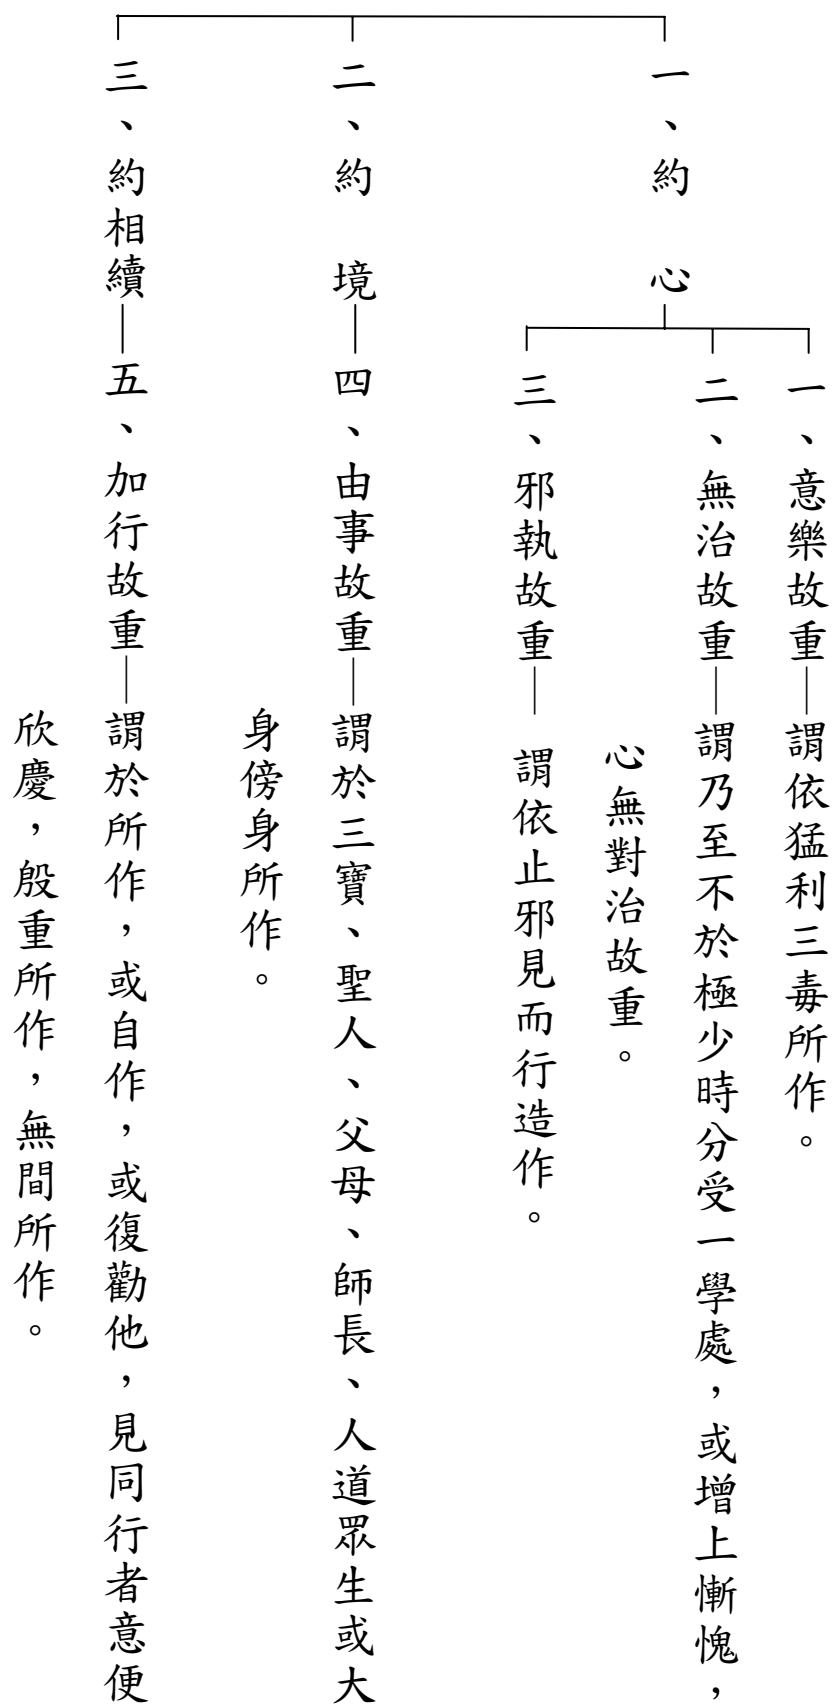 一、約　心
一、意樂故重—謂依猛利三毒所作。
二、無治故重—謂乃至不於極少時分受一學處，或增上慚愧，
心無對治故重。
三、邪執故重—謂依止邪見而行造作。
二、約　境—四、由事故重—謂於三寶、聖人、父母、師長、人道眾生或大
身傍身所作。
三、約相續—五、加行故重—謂於所作，或自作，或復勸他，見同行者意便
欣慶，殷重所作，無間所作。